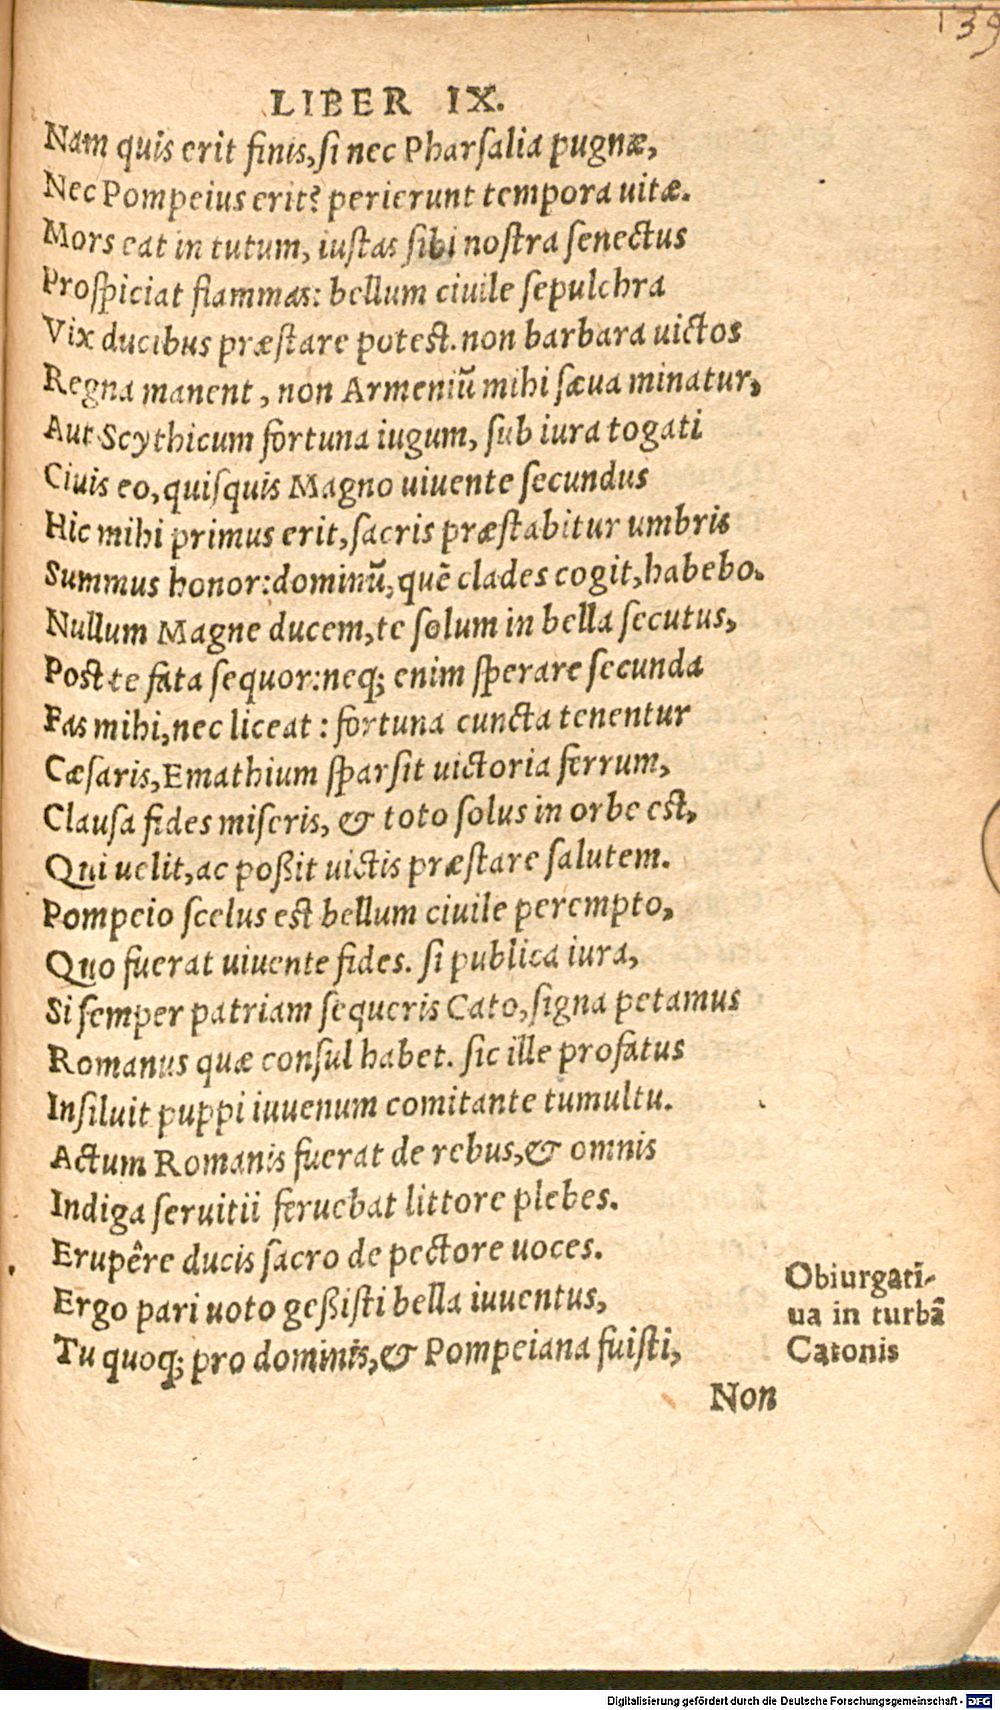 139
LIBER IX.
Nam quis erit finis, si nec Pharsalia pugnæ,
Nec Pompeius erit? perierunt tempora uitæ.
Mors eat in tutum, iustas sibi nostra senectus
Prospiciat flammas: bellum ciuile sepulchra
Vix ducibus præstare potest. non barbara uictos
Regna manent, non Armeniū mihi sæua minatur,
Aut Scythicum fortuna iugum, sub iura togati
Ciuis eo, quisquis Magno uiuente secundus
Hic mihi primus erit, sacris præstabitur umbris
Summus honor: dominū, quē clades cogit, habebo.
Nullum Magne ducem, te solum in bella secutus,
Post te fata sequor: neq; enim sperare secunda
Fas mihi, nec liceat: fortuna cuncta tenentur
Cæsaris, Emathium sparsit uictoria ferrum,
Clausa fides miseris, & toto solus in orbe est,
Qui uelit, ac poßit uictis præstare salutem.
Pompeio scelus est bellum ciuile perempto,
Quo fuerat uiuente fides. si publica iura,
Si semper patriam sequeris Cato, signa petamus
Romanus quæ consul habet. sic ille profatus
Insiluit puppi iuuenum comitante tumultu.
Actum Romanis fuerat de rebus, & omnis
Indiga seruitii feruebat littore plebes.
Erupêre ducis sacro de pectore uoces.
Ergo pari uoto geßisti bella iuuentus,
Tu quoq; pro dominis, & Pompeiana fuisti,
Obiurgatī-
ua in turbā
Catonis
Non
Digitalisierung gefördert durch die Deutsche Forschungsgemeinschaft - DFG